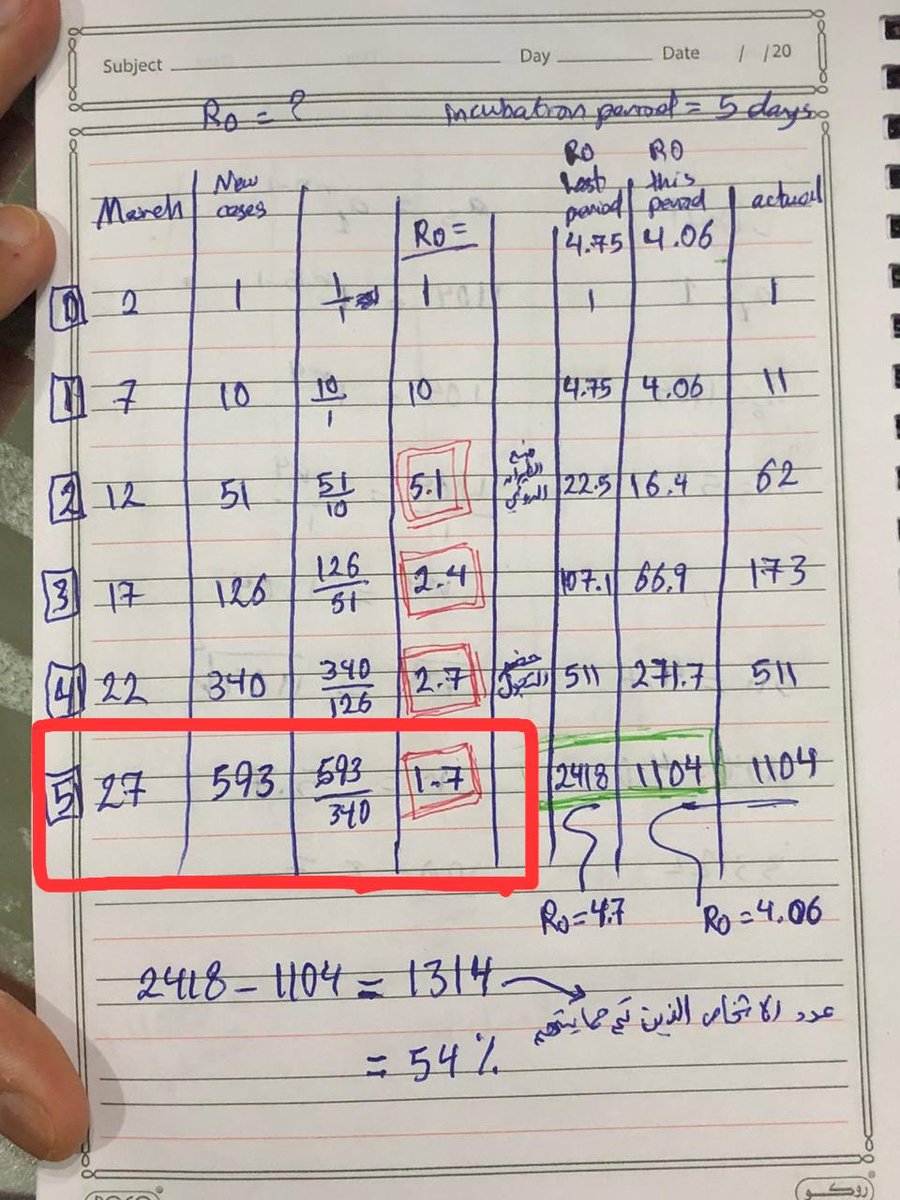 Subject Day Date / /20
R0 = ? incubation period = 5 days
March New cases R0 = R0 last period 4.75 R0 this period 4.06 actual
0 2 1 1/1 1 1 1
1 7 10 10/1 10 4.75 4.06 11
2 12 51 51/10 5.1 منع 22.5 16.4 62
3 17 126 126/51 2.4 107.1 66.9 173
4 22 340 340/126 2.7 حضر التجول 511 271.7 511
5 27 593 593/340 1.7 2418 1104 1104
R0 = 4.7 R0 = 4.06
2418 - 1104 = 1314
عدد الاشخاص الذين تم حمايتهم
= 54 %
ROCO روكو